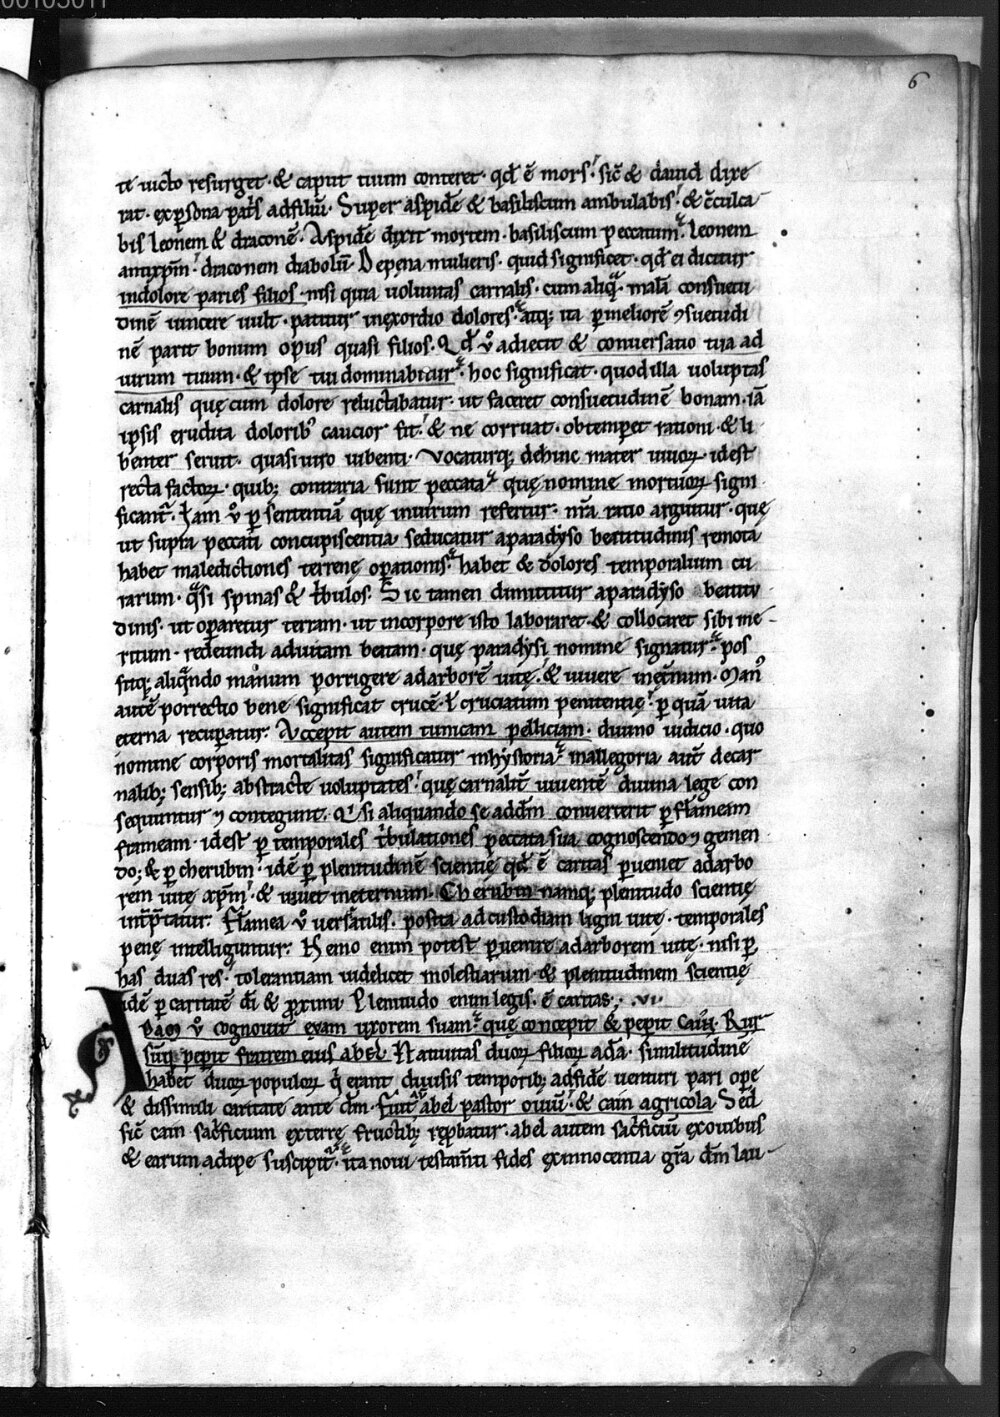 00103011
6
te uicto resurget · & caput tuum conteret · qđ ē mors · sic̄ & dauid dixe
rat · ex ꝑsona pat̄s ad filiū · Super aspidē & basiliscum ambulabis · & c̄culca
bis leonem & draconē · Aspidē dixit mortem · basiliscum peccatum · leonem
antixp̄m · draconem diabolū · De pena mulieris · quid significet · qđ ei dicitur
in dolore paries filios · nisi quia uoluntas carnalis · cum aliqͣ malā consuetu
dinē uincere uult · patitur in exordio dolores · atq; ita ꝑ meliorē ꝯsuetudi
nē parit bonum opus quasi filios · Qđ u̾ adiecit & conuersatio tua ad
uirum tuum · & ipse tui dominabitur · hoc significat · quod illa uoluptas
carnalis quę cum dolore reluctabatur · ut faceret consuetudinē bonam · iā
ipsis erudita dolorib; caucior fit · & ne corruat · obtemꝑet rationi · & li
benter seruit · quasi uiro iubenti · Vocaturq; dehinc mater uiuoꝝ · id est
recta factoꝝ · quib; contraria sunt peccata · quę nomine mortuoꝝ signi
ficant̄ · Iam u̾ ꝑ sententiā quę in uirum refertur · nr̄a ratio arguitur · quę
ut supra peccati concupiscentia seducatur a paradyso beatitudinis remota
habet maledictiones terrenę oꝑationis · habet & dolores temporalium cu
rarum · qͣsi spinas & t̾bulos · Sic tamen dimittitur a paradyso beatitu
dinis · ut oꝑaretur terram · ut in corpore isto laboraret · & collocaret sibi me-
ritum · redeundi ad uitam beatam · quę paradysi nomine signatur · pos
sitq; aliqͣndo manum porrigere ad arborē uitę · & uiuere inet̄num · Man̾
autē porrectio bene significat crucē · ł cruciatum penitentię · ꝑ quā uita
eterna recuꝑatur · Accepit autem tunicam pelliciam · diuino iudicio · quo
nomine corporis mortalitas significatur in hystoria · in allegoria aut̄ de car
nalib; sensib; abstracte uoluptates · quę carnalit̄ uiuentē diuina lege con
sequuntur ꝯ contegunt · Q̾ si aliquando se ad dm̄ conuerterit ꝑ flāmeam
frameam · id est ꝑ temporales t̾bulationes peccata sua cognoscendo ꝯ gemen
do; & ꝑ cherubin · idē ꝑ plenitudinē scientię qđ ē caritas ꝑueniet ad arbo
rem uitę xp̄m · & uiuet in eternum · Cherubin namq; plenitudo scientię
int̄p̄tatur · Flamea u̾ uersatilis · posita ad custodiam ligni uitę · temporales
penę intelliguntur · Nemo enim potest ꝑuenire ad arborem uitę · nisi ꝑ
has duas res · tolerantiam uidelicet molestiarum · & plenitudinem scientię
idē ꝑ caritatē di & ꝓximi Plenitudo enim legis · ē caritas · vi ·
Adam u̾ cognouit euam uxorem suam · quę concepit & peperit Cain · Rur
sūq; peperit fratrem eius abel Natiuitas duoꝝ filioꝝ adā · similitudinē
habet duoꝝ populoꝝ q̾ erant diuisis temporib; ad fidē uenturi pari ope
& dissimili caritate ante dm̄ · fuit aūt abel pastor ouiū · & cain agricola Sed
sic̄ cain sac̾ficium ex terrę fructib; reꝓbatur · abel autem sac̾ficiū ex ouibus
& earum adipe suscipit̄ · ita noui testam̄ti fides ex innocentia gr̄a dm̄ lau-